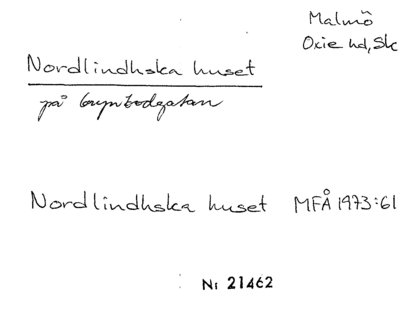 Malmö
Oxie hd, Sk
Nordlindhska huset
på
Nordlindhska huset MFÅ 1973:61
Nr 21462